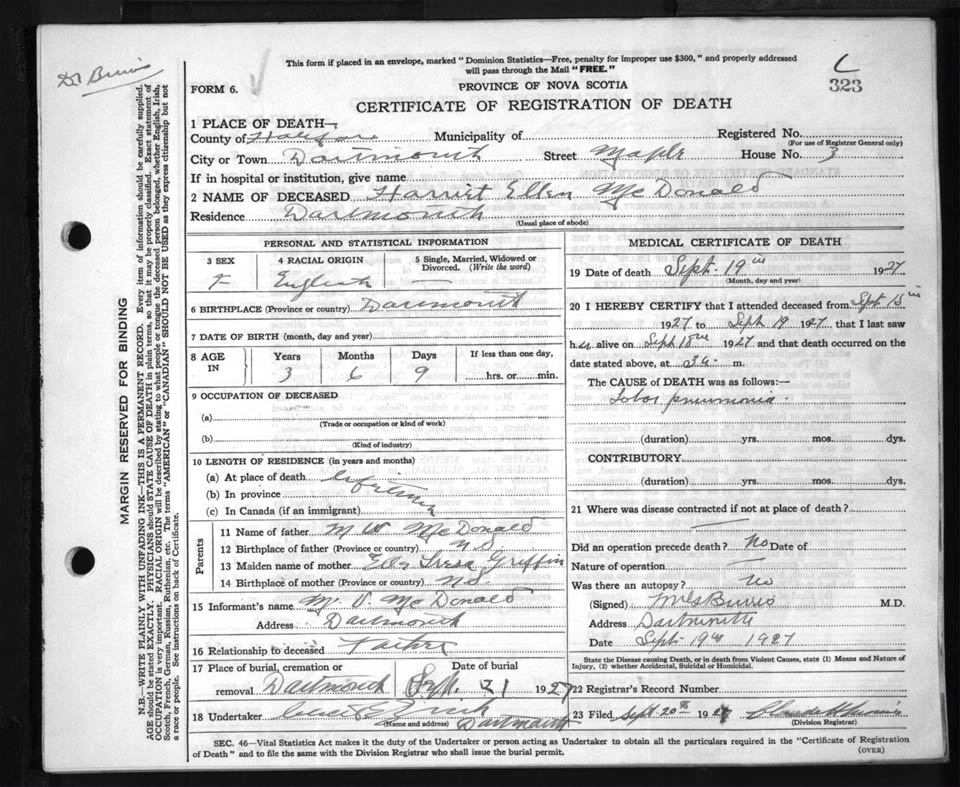 Dr Burris
This form if placed in an envelope, marked "Dominion Statistics—Free, penalty for improper use $300," and properly addressed
will pass through the Mail "FREE."
C
323
FORM 6.
PROVINCE OF NOVA SCOTIA
CERTIFICATE OF REGISTRATION OF DEATH
1 PLACE OF DEATH—
County of Halifax Municipality of Registered No.
(For use of Registrar General only)
City or Town Dartmouth Street Maple House No. 3
If in hospital or institution, give name
2 NAME OF DECEASED Harriet Ellen McDonald
Residence Dartmouth
(Usual place of abode)
PERSONAL AND STATISTICAL INFORMATION
3 SEX 4 RACIAL ORIGIN 5 Single, Married, Widowed or
Divorced. (Write the word)
F English —
6 BIRTHPLACE (Province or country) Dartmouth
7 DATE OF BIRTH (month, day and year)
8 AGE IN Years Months Days If less than one day,
3 6 9 hrs. or min.
9 OCCUPATION OF DECEASED
(a)
(Trade or occupation or kind of work)
(b)
(Kind of industry)
10 LENGTH OF RESIDENCE (in years and months)
(a) At place of death lifetime
(b) In province
(c) In Canada (if an immigrant)
Parents
11 Name of father M. W. McDonald
12 Birthplace of father (Province or country) N.S
13 Maiden name of mother Ella Griffin
14 Birthplace of mother (Province or country) N.S.
15 Informant's name McDonald
Address Dartmouth
16 Relationship to deceased Father
17 Place of burial, cremation or Date of burial
removal Dartmouth Sept. 21 1927
18 Undertaker
(Name and address) Dartmouth
MEDICAL CERTIFICATE OF DEATH
19 Date of death Sept. 19th 1927
(Month, day and year)
20 I HEREBY CERTIFY that I attended deceased from Sept 15th
1927 to Sept 19 1927 that I last saw
her alive on Sept 18th 1927 and that death occurred on the
date stated above, at m.
The CAUSE of DEATH was as follows:—
Lobar pneumonia.
(duration) yrs. mos. dys.
CONTRIBUTORY
(duration) yrs. mos. dys.
21 Where was disease contracted if not at place of death?
—
Did an operation precede death? No Date of
Nature of operation —
Was there an autopsy? No
(Signed) Burris M.D.
Address Dartmouth
Date Sept 19th 1927
State the Disease causing Death, or in death from Violent Causes, state (1) Means and Nature of
Injury, (2) whether Accidental, Suicidal or Homicidal.
22 Registrar's Record Number
23 Filed Sept 20th 1927
(Division Registrar)
SEC. 46—Vital Statistics Act makes it the duty of the Undertaker or person acting as Undertaker to obtain all the particulars required in the "Certificate of Registration
of Death" and to file the same with the Division Registrar who shall issue the burial permit.
(OVER)
MARGIN RESERVED FOR BINDING
N.B.—WRITE PLAINLY WITH UNFADING INK—THIS IS A PERMANENT RECORD. Every item of information should be carefully supplied.
AGE should be stated EXACTLY. PHYSICIANS should STATE CAUSE OF DEATH in plain terms, so that it may be properly classified. Exact statement of
OCCUPATION is very important. RACIAL ORIGIN will be described by stating to what people or tongue the deceased person belonged, whether English, Irish,
Scotch, French, German, Russian, Ruthenian, etc. The terms "AMERICAN" or "CANADIAN" SHOULD NOT BE USED as they express citizenship but not
a race or people. See instructions on back of Certificate.